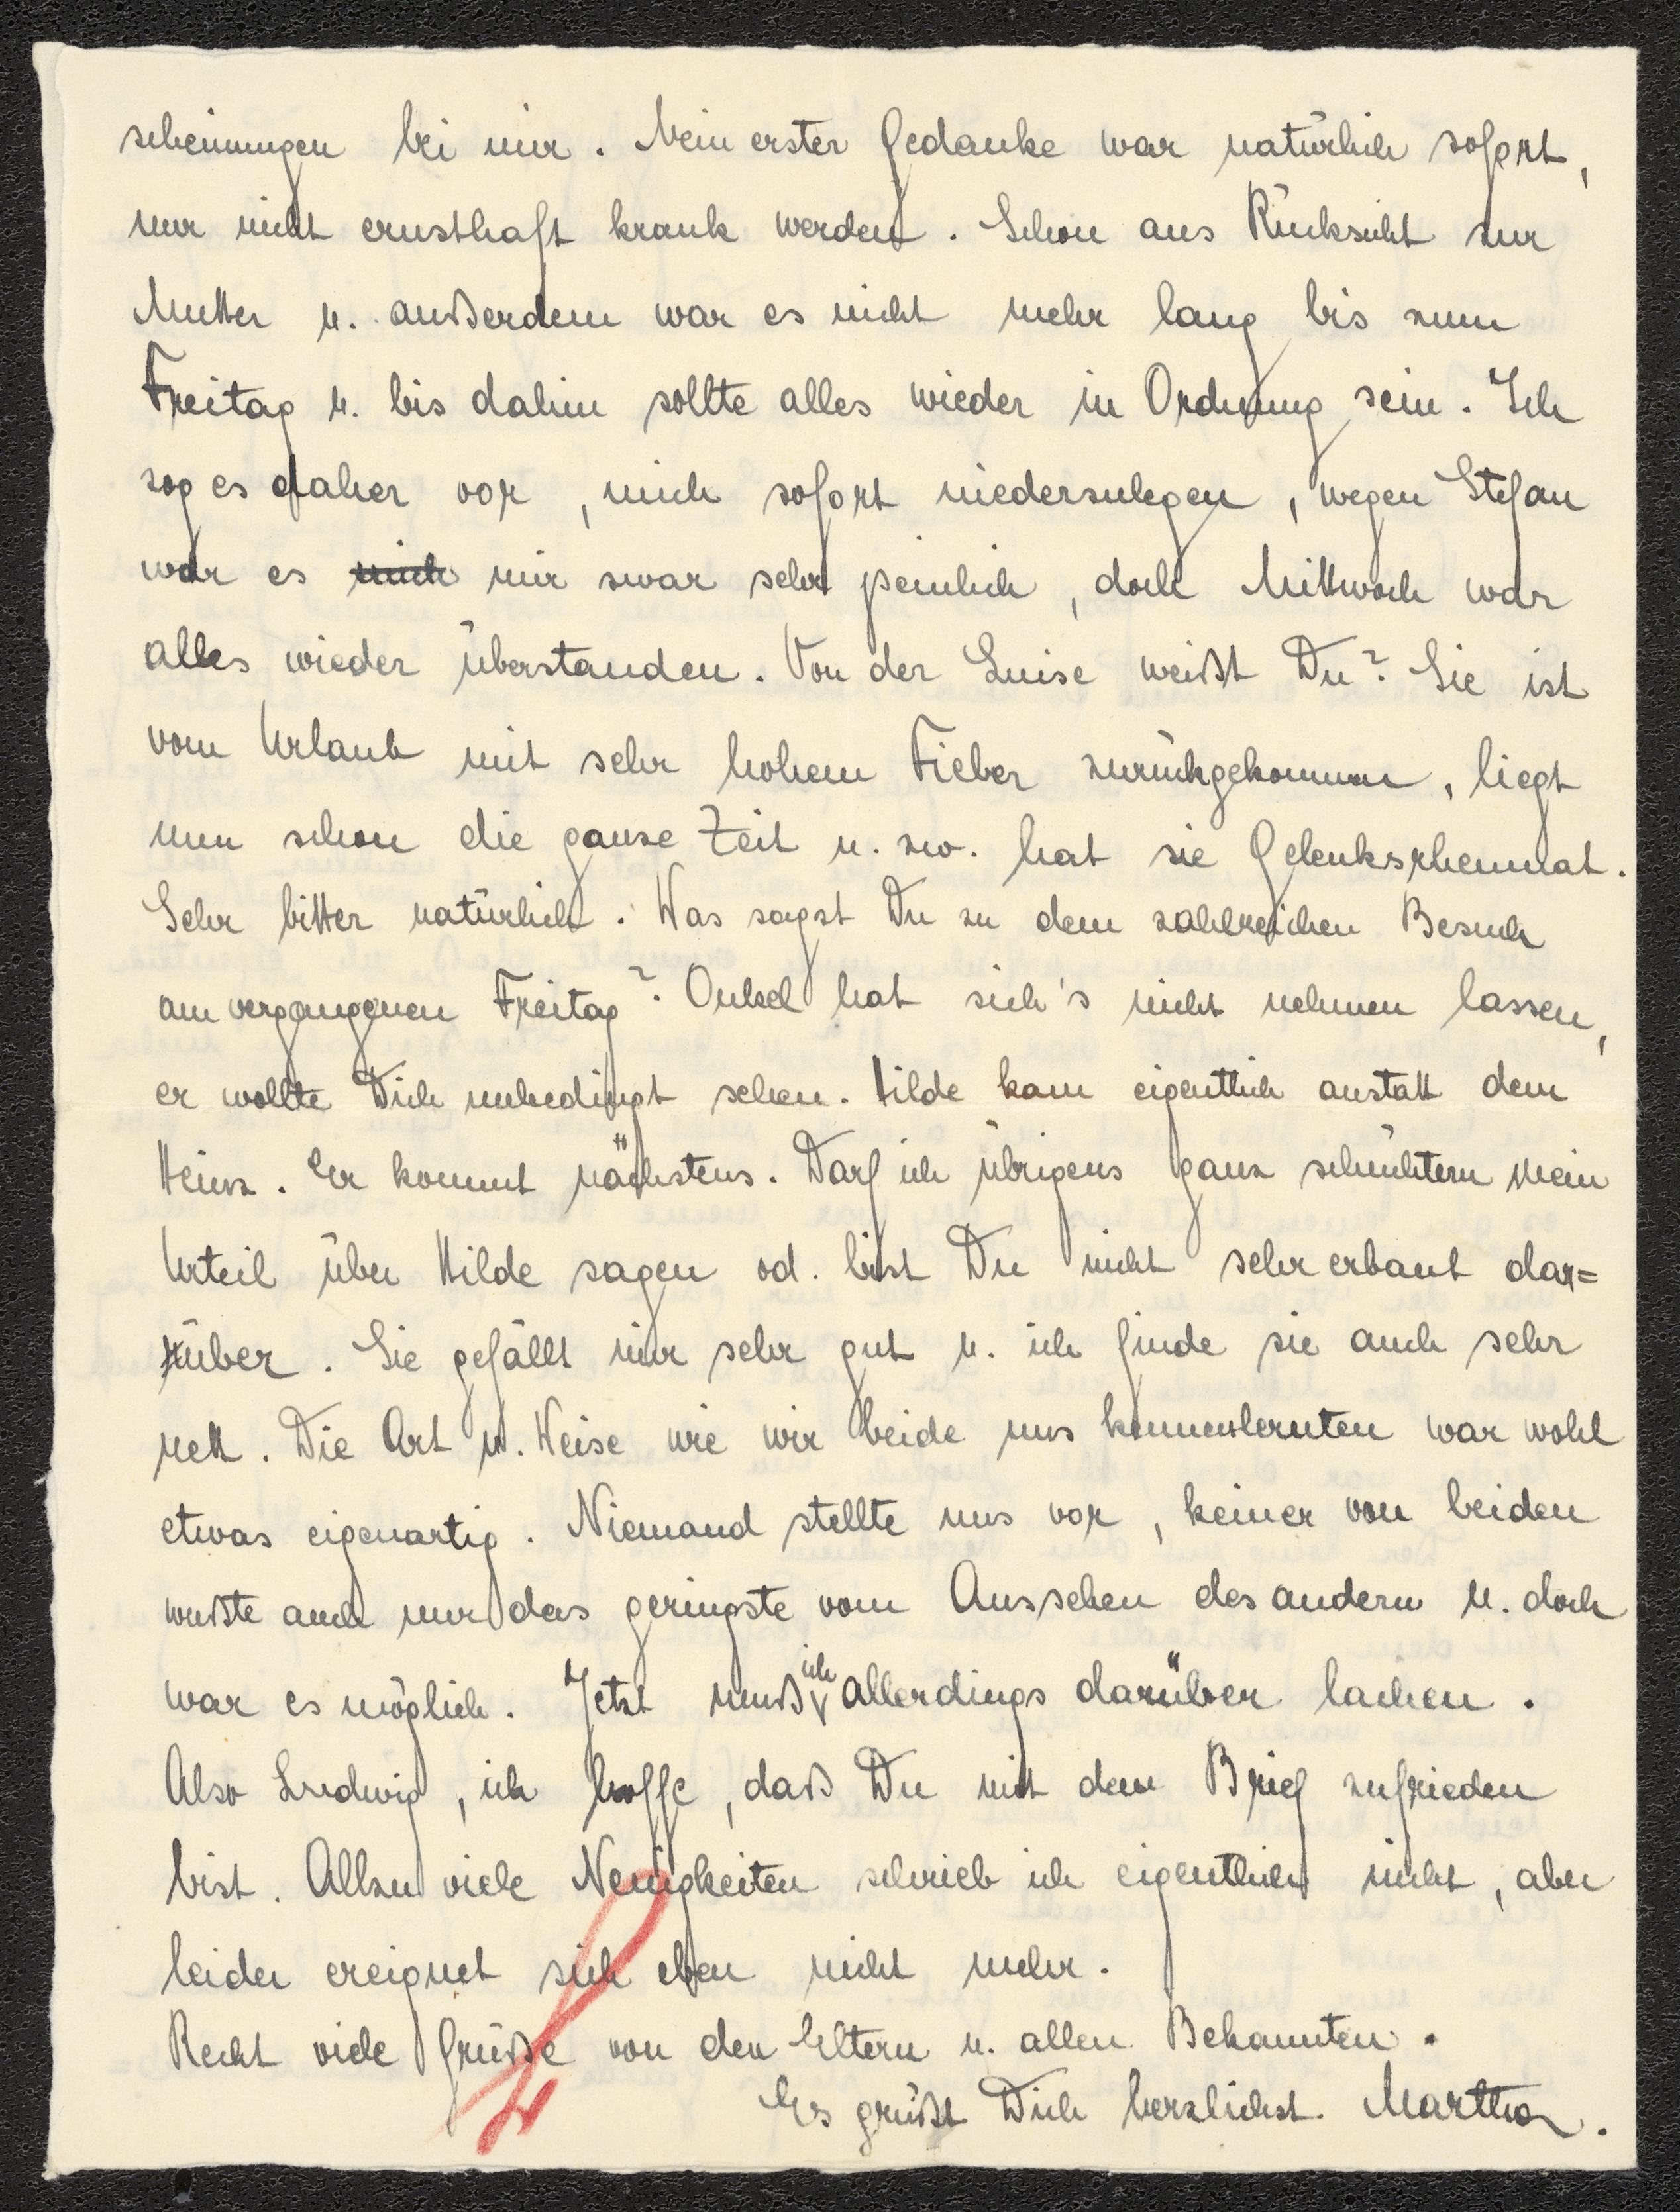 scheinungen bei mir. Mein erster Gedanke war natürlich sofort,
nur nicht ernsthaft krank werden. Schon aus Rücksicht zur
Mutter u. außerdem war es nicht mehr lang bis zum
Freitag u. bis dahin sollte alles wieder in Ordnung sein. Ich
zog es daher vor, mich sofort niederzulegen, wegen Stefan
war es mich mir zwar sehr peinlich, doch Mittwoch war
alles wieder überstanden. Von der Luise weißt Du? Sie ist
vom Urlaub mit sehr hohem Fieber zurückgekommen, liegt
nun schon die ganze Zeit u. zw. hat sie Gelenksrheumat.
Sehr bitter natürlich. Was sagst Du zu dem zahlreichen Besuch
am vergangenen Freitag? Onkel hat sich's nicht nehmen lassen,
er wollte Dich unbedingt sehen. Hilde kam eigentlich anstatt dem
Heinz. Er kommt nächstens. Darf ich übrigens ganz schüchtern mein
Urteil über Hilde sagen od. bist Du nicht sehr erbaut dar=
über. Sie gefällt mir sehr gut u. ich finde sie auch sehr
nett. Die Art u. Weise wie wir beide uns kennenlernten war wohl
etwas eigenartig. Niemand stellte uns vor, keiner von beiden
wußte auch nur das geringste vom Aussehen des andern u. doch
war es möglich. Jetzt muß ich allerdings darüber lachen.
Also Ludwig, ich hoffe, daß Du mit dem Brief zufrieden
bist. Allzu viele Neuigkeiten schrieb ich eigentlich nicht, aber
leider ereignet sich eben nicht mehr.
Recht viele Grüße von den Eltern u. allen Bekannten.
Es grüßt Dich herzlichst Martha.